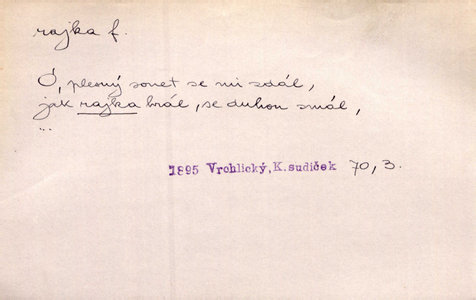 rajka f.
Ó, plesný sonet se mi zdál,
jak rajka hrál, se duhou smál,
...
1895 Vrchlický, K.sudiček 70, 3.